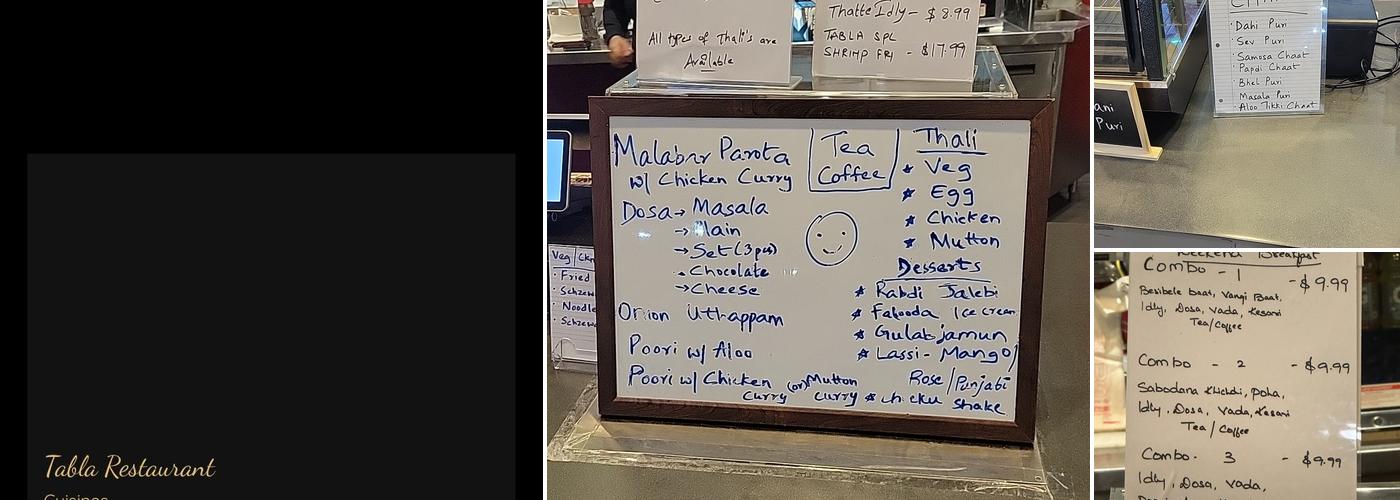 Tabla Restaurant
Cuisines
All types of Thali's are
Available
Thatte Idly - $8.99
TABLA SPL
SHRIMP FRI - $17.99
Malabar Parota
w/ Chicken Curry
Dosa → Masala
→ Plain
→ Set (3pcs)
→ Chocolate
→ Cheese
Onion Uthappam
Poori w/ Aloo
Poori w/ Chicken (or) Mutton
Curry curry
Tea
Coffee
Thali
* Veg
* Egg
* Chicken
* Mutton
Desserts
* Rabdi Jalebi
* Falooda Ice cream
* Gulabjamun
* Lassi - Mango/
Rose/Punjabi
* chicku shake
Veg/Ckn
· Fried
· Schzew
· Noodle
· Schzew
· Dahi Puri
· Sev Puri
· Samosa Chaat
· Papdi Chaat
· Bhel Puri
· Masala Puri
· Aloo Tikki Chaat
ani
Puri
Weekend Breakfast
Combo - 1 - $9.99
Besibele baat, Vangi Baat,
Idly, Dosa, Vada, Kesari
Tea/Coffee
Combo - 2 - $9.99
Sabodana Khichdi, Poha,
Idly, Dosa, Vada, Kesari
Tea/Coffee
Combo - 3 - $9.99
Idly, Dosa, Vada,